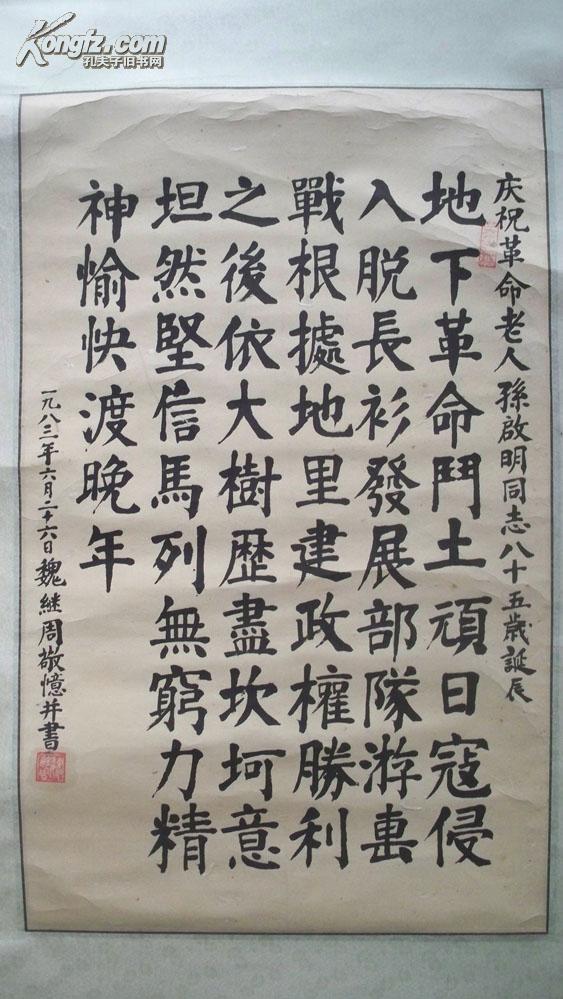 Kongfz.com
孔夫子旧书网
庆祝革命老人孫啟明同志八十五歲誕辰
地下革命鬥土頑日寇侵
入脱長衫發展部隊游击
戰根據地里建政權勝利
之後依大樹歷盡坎坷意
坦然堅信馬列無窮力精
神愉快渡晚年
一九八三年六月二十六日魏継周敬憶并書